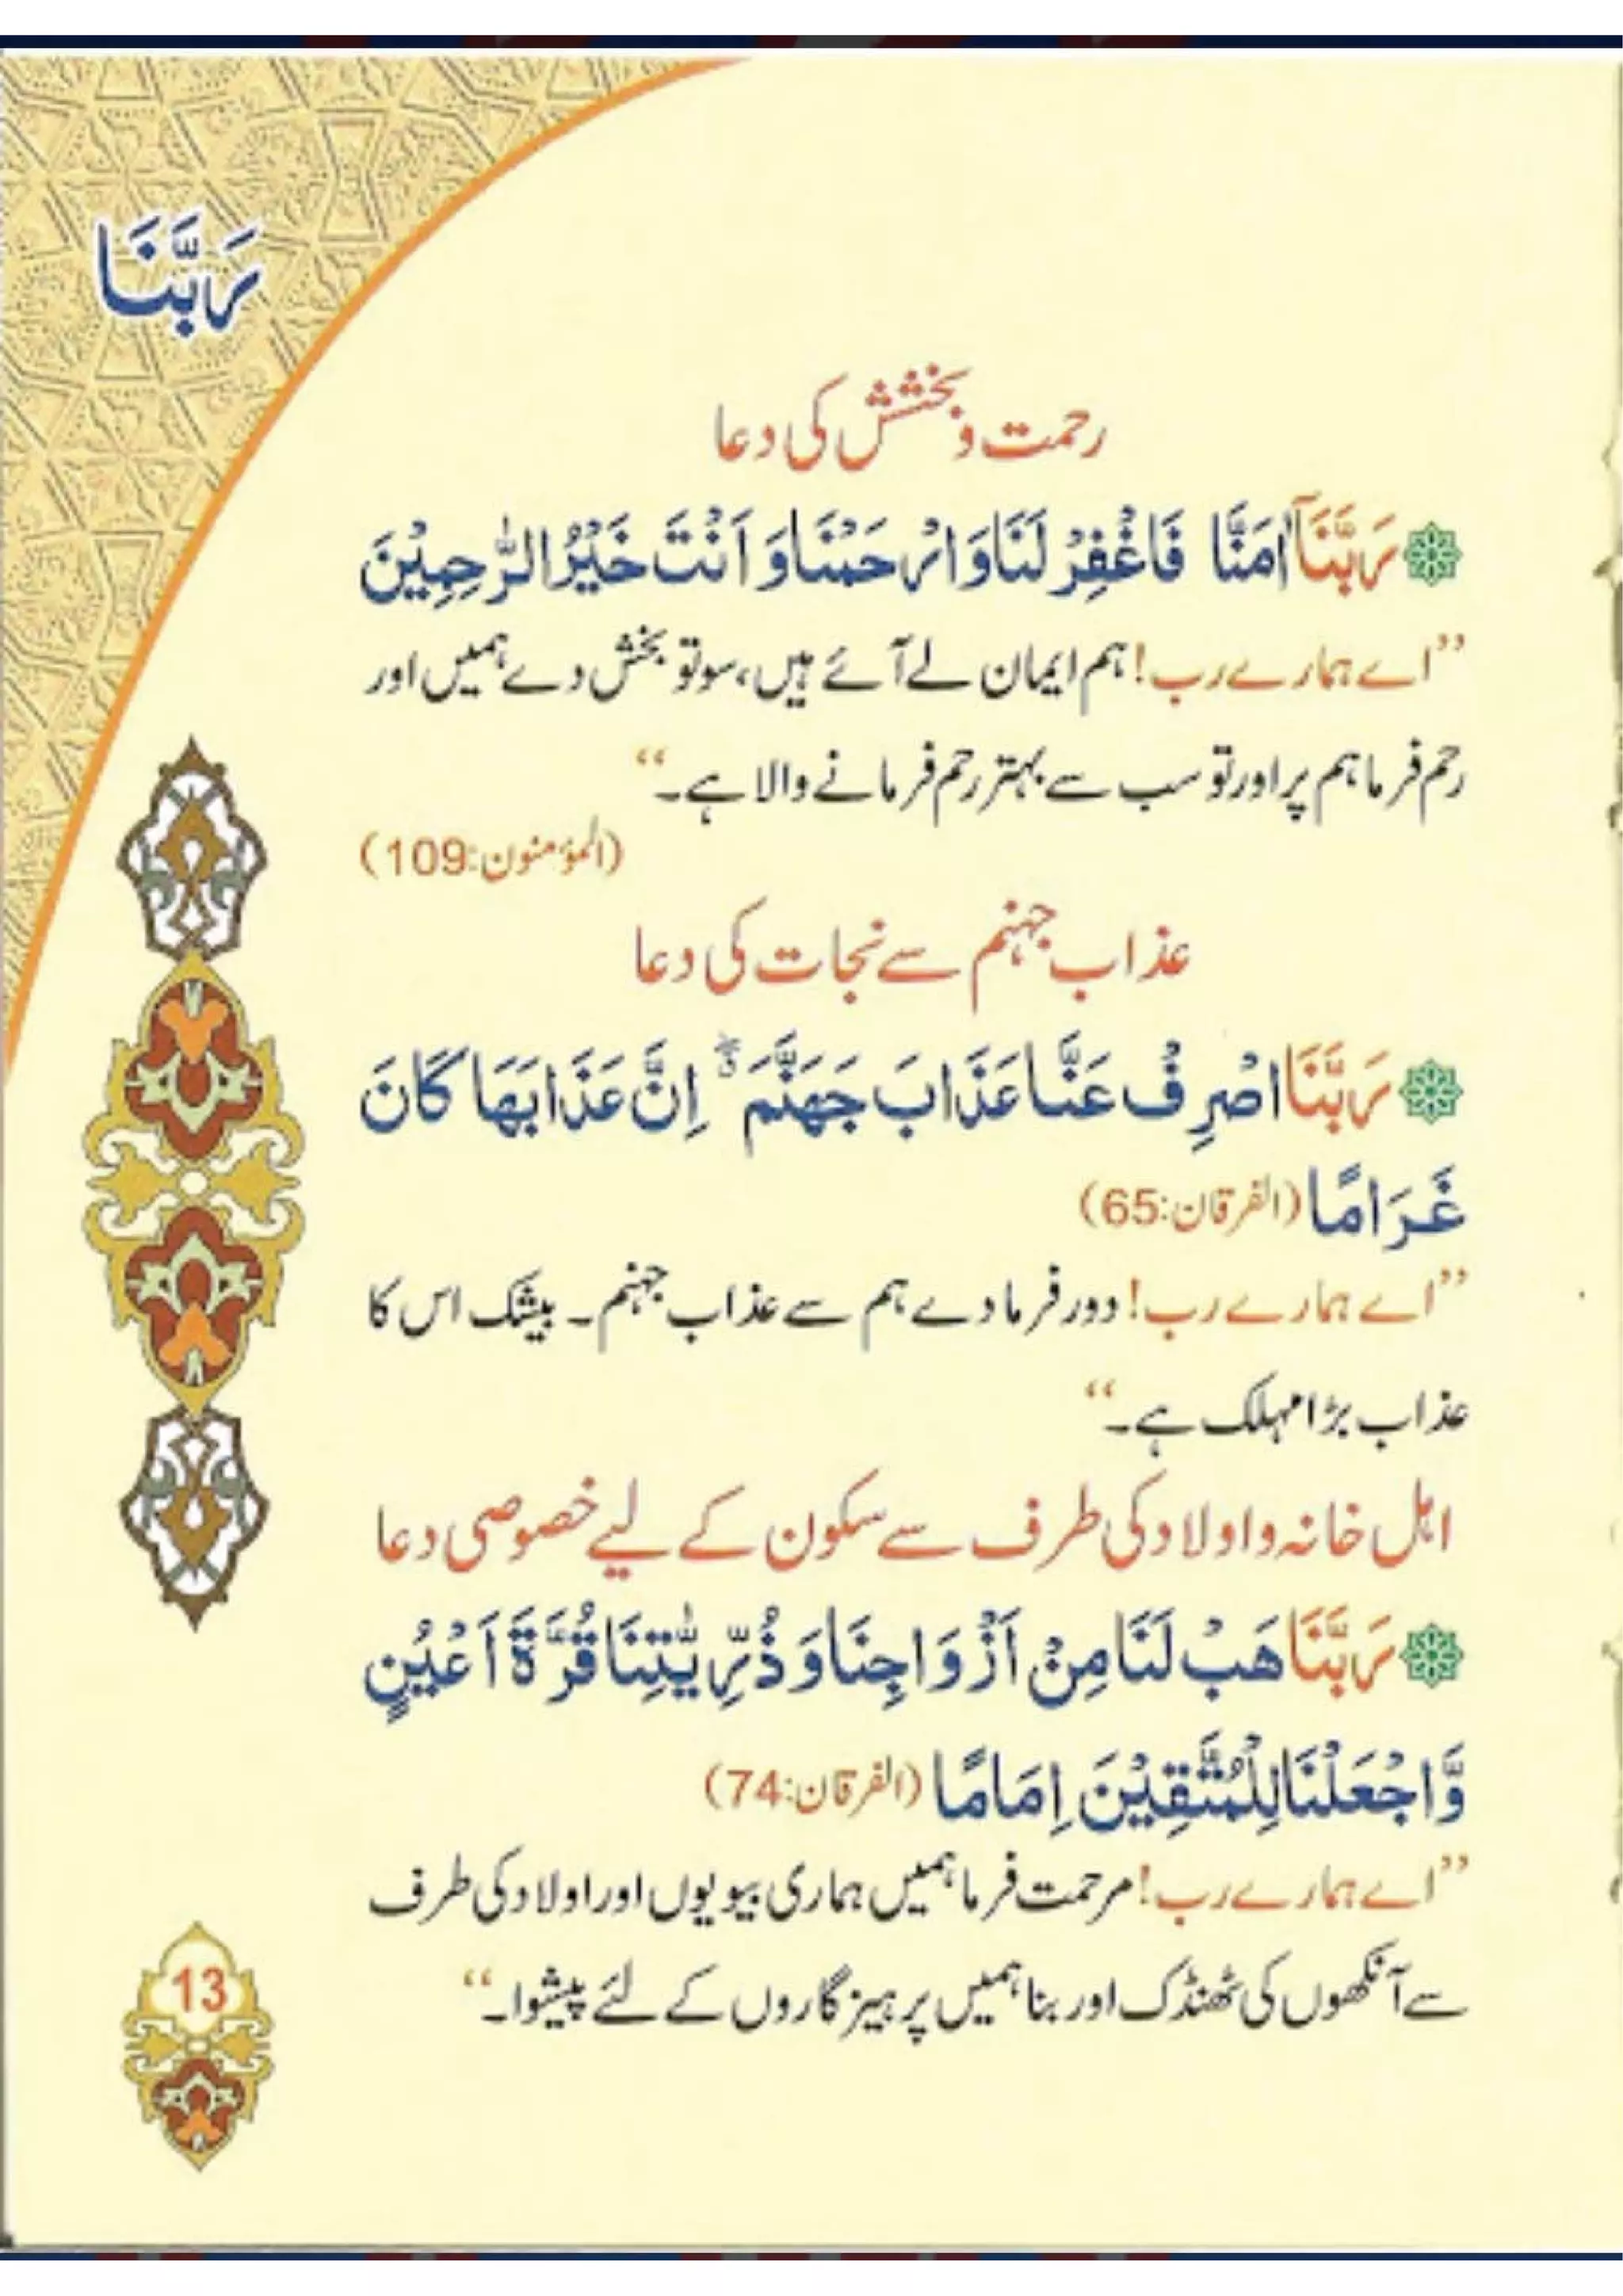 رَبَّنَا
رحمت و بخشش کی دعا
رَبَّنَآ اٰمَنَّا فَاغْفِرْ لَنَا وَارْحَمْنَا وَاَنْتَ خَيْرُ الرّٰحِمِيْنَ
’’اے ہمارے رب! ہم ایمان لے آئے ہیں، سو تو بخش دے ہمیں اور
رحم فرما ہم پر اور تو سب سے بہتر رحم فرمانے والا ہے۔‘‘
(المؤمنون:109)
عذاب جہنم سے نجات کی دعا
رَبَّنَا اصْرِفْ عَنَّا عَذَابَ جَهَنَّمَ ۖۗ اِنَّ عَذَابَهَا كَانَ
غَرَامًا (الفرقان:65)
’’اے ہمارے رب! دور فرما دے ہم سے عذاب جہنم۔ بیشک اس کا
عذاب بڑا مہلک ہے۔‘‘
اہل خانہ و اولاد کی طرف سے سکون کے لیے خصوصی دعا
رَبَّنَا هَبْ لَنَا مِنْ اَزْوَاجِنَا وَذُرِّيّٰتِنَا قُرَّةَ اَعْيُنٍ
وَّاجْعَلْنَا لِلْمُتَّقِيْنَ اِمَامًا (الفرقان:74)
’’اے ہمارے رب! مرحمت فرما ہمیں ہماری بیویوں اور اولاد کی طرف
سے آنکھوں کی ٹھنڈک اور بنا ہمیں پرہیزگاروں کے لئے پیشوا۔‘‘
13